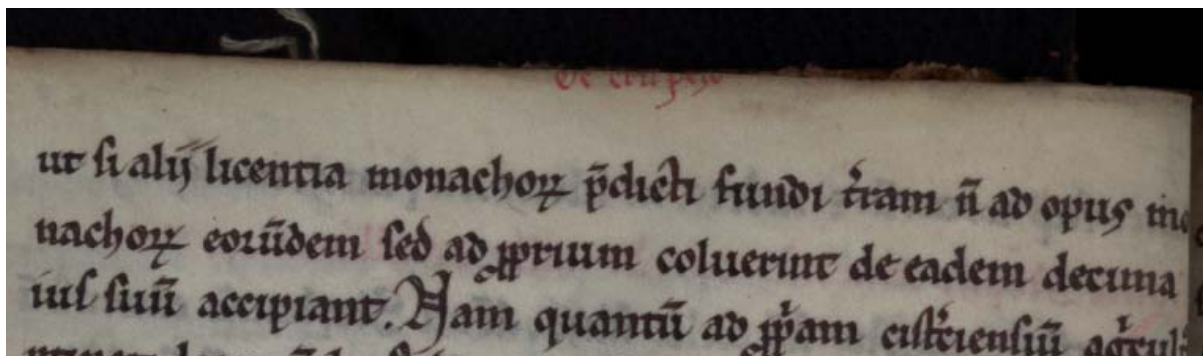 ut si alij licentia monachoꝝ p̄dicti fundi t̉ram n̄ ad opus mo
nachoꝝ eorūdem sed ad ꝓprium coluerint de eadem decima
ius suū accipiant. Nam quantū ad ꝓp̉am cist̉ciensiū